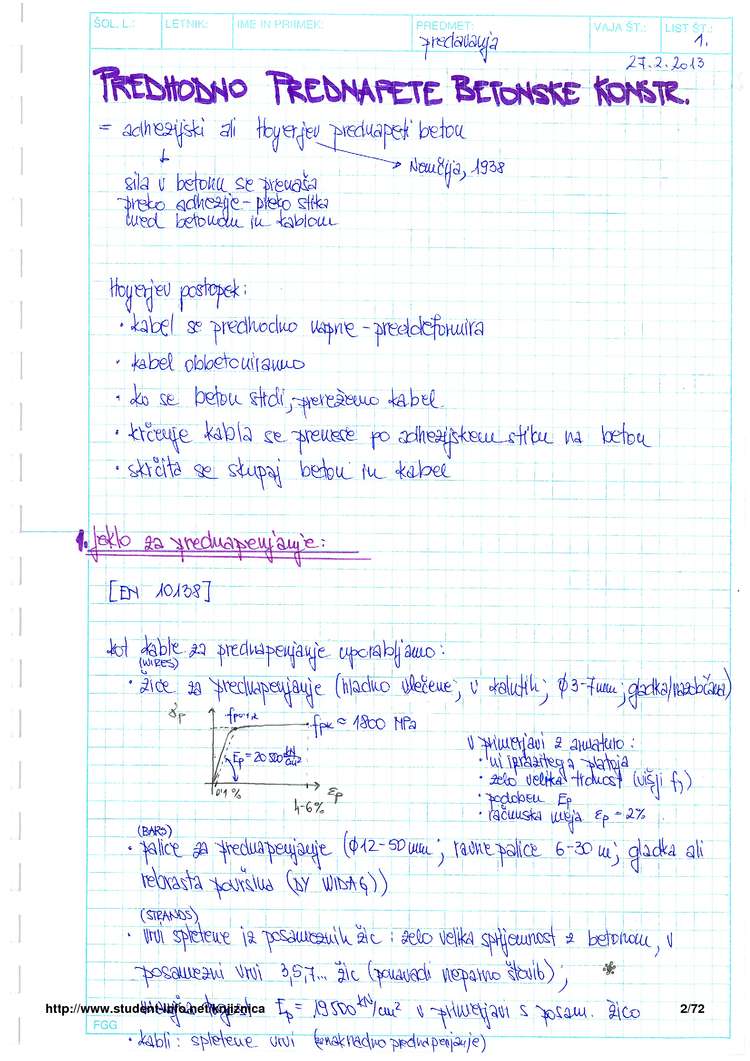 ŠOL. L.: LETNIK: IME IN PRIIMEK: PREDMET: VAJA ŠT.: LIST ŠT.:
predavanja 1.
27.2.2013
PREDHODNO PREDNAPETE BETONSKE KONSTR.
= adhezijski ali Hoyerjev prednapeti beton
Nemčija, 1938
sila v betonu se prenaša
preko adhezije - preko stika
med betonom in kablom
Hoyerjev postopek:
• kabel se predhodno napne - preddeformira
• kabel obbetoniramo
• ko se beton strdi, prerežemo kabel.
• krčenje kabla se prenese po adhezijskem stiku na beton
• skrčita se skupaj beton in kabel
1. Jeklo za prednapenjanje:
[EN 10138]
kot kable za prednapenjanje uporabljamo:
(WIRES)
• žice za prednapenjanje (hladno vlečene; v kolutih; φ3-7mm; gladka/nazobčana)
fpk ≈ 1800 MPa
Ep = 20500 kN/cm²
0,1 %
εp
4-6%
v primerjavi z armaturo:
• ni izrazitega platoja
• zelo velika trdnost (višji f
• podoben Ep
• računska meja εp = 2%
(BARS)
• palice za prednapenjanje (φ12-50mm; ravne palice 6-30 m; gladka ali
rebrasta površina (DY WIDAG))
(STRANDS)
• vrvi spletene iz posameznih žic: zelo velika sprijemnost z betonom, v
posamezni vrvi 3,5,7... žic (ponavadi neparno število); *
http://www.student-info.net/knjiznica Ep = 19500 kN/cm² v primerjavi s posam. žico 2/72
FGG
• kabli: spletene vrvi (naknadno prednapenjanje)